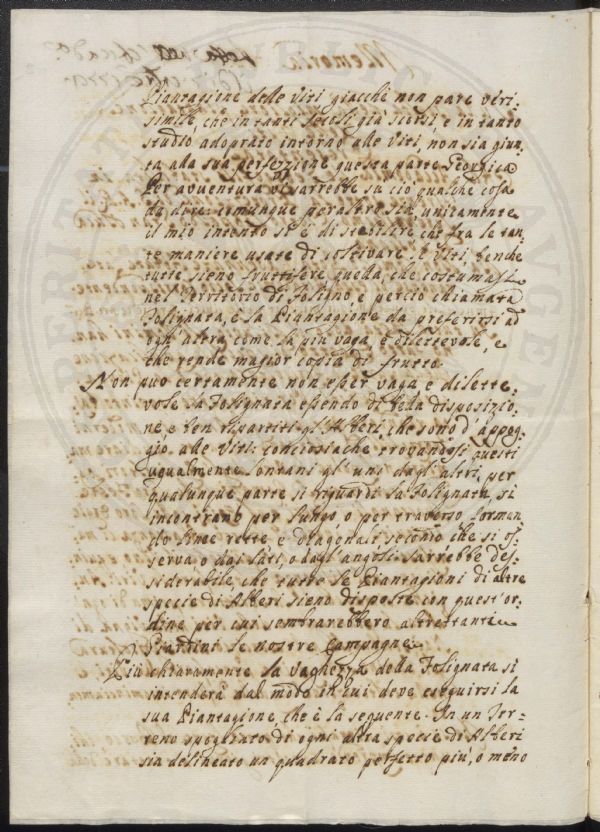 Piantagione delle Viti giacchè non pare veri=
simile, che in tanti secoli già scorsi, e in tanto
studio adoprato intorno alle Viti, non sia giun=
ta alla sua perfezzione questa parte Georgica
Per avventura vi sarrebbe su ciò qualche cosa
da dire: comunque peraltro sia, unicamente
il mio intento si è di stabilire che fra le tan=
te maniere usate di coltivare le Viti, benche
tutte sieno fruttifere quella, che costumasi
nel Territorio di Foligno, e perciò chiamata
Folignata, è la Piantagione da preferirsi ad
ogn'altra come la più vaga, e dilettevole, e
che rende magior copia di frutto.
Non può certamente non esser vaga e dilette=
vole la Folignata essendo di bella disposizio=
ne e ben ripartiti gl'Alberi, che sono d'appog=
gio alle Viti: conciosiache trovandosi questi
ugualmente lontani gl'uni dagl'altri, per
qualunque parte si riguardi la Folignata, si
incontrano per lungo, o per traverso forman=
do linee rette, e diagonali secondo che si os=
serva, o dai lati, o dagl'angoli. Sarrebbe des=
siderabile che tutte le Piantagioni di altre
specie di Alberi sieno disposte con quest'or=
dine per cui sembrarebbero altrettanti
Giardini le nostre Campagne.
Più chiaramente la vaghezza della Folignata si
intenderà dal modo in cui deve eseguirsi la
sua Piantagione, che è la seguente. In un Ter=
reno spogliato di ogni altra specie di Alberi
sia delineato un quadrato perfetto più, o meno